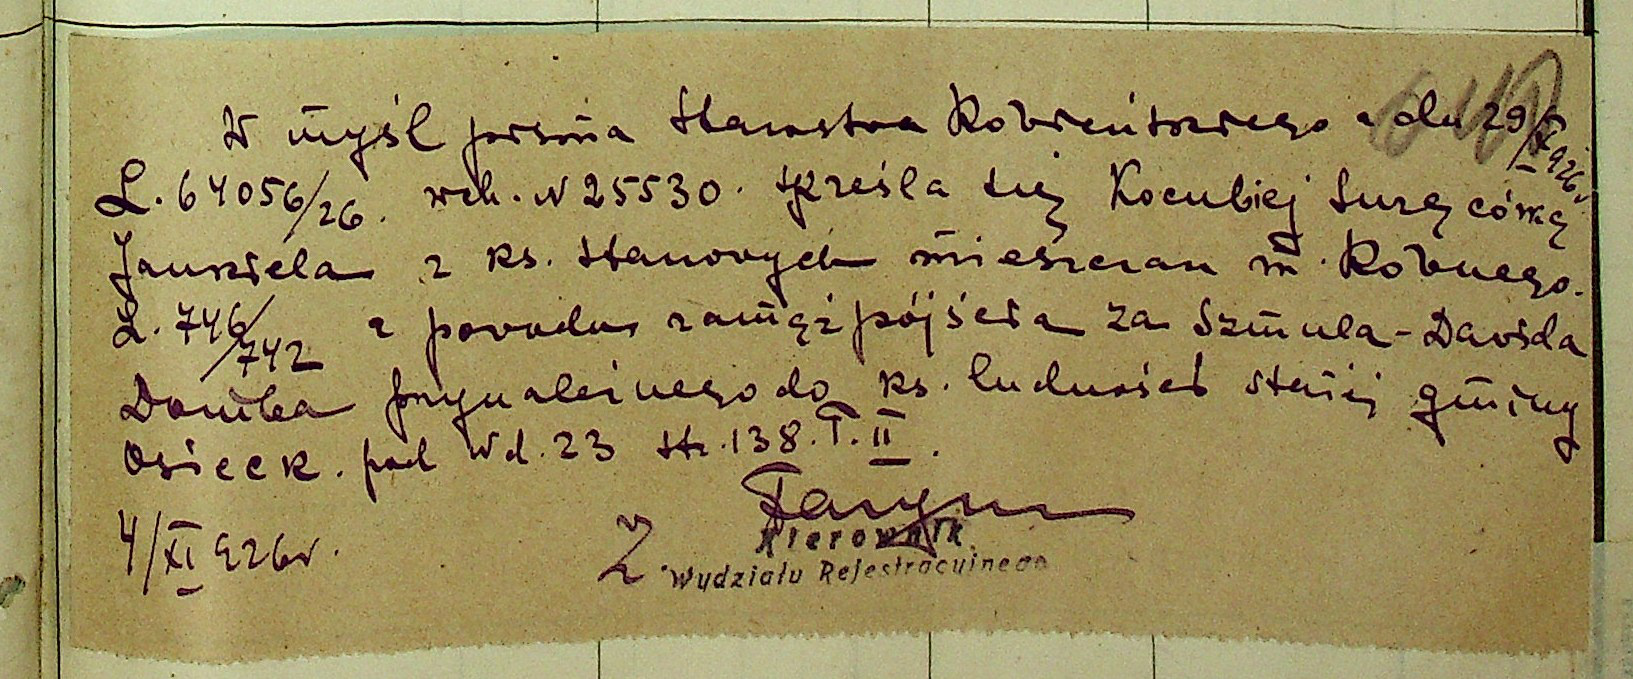 W myśl pisma Starostwa Rówieńskiego z dn 29/X 926 r
L. 64056/26. wch. N 25530. skreśla się Kocubiej Surę córkę
Jankiela z ks. stanowych mieszczan m. Równego.
L. 746/742 z powodu zamążpójścia za Szmula-Dawida
Domba przynależnego do ks. ludności stałej gminy
Osieck. pod Nd. 23 str. 138. T. II.
4/XI 926 r.
Z
Kierownik
Wydziału Rejestracyjnego